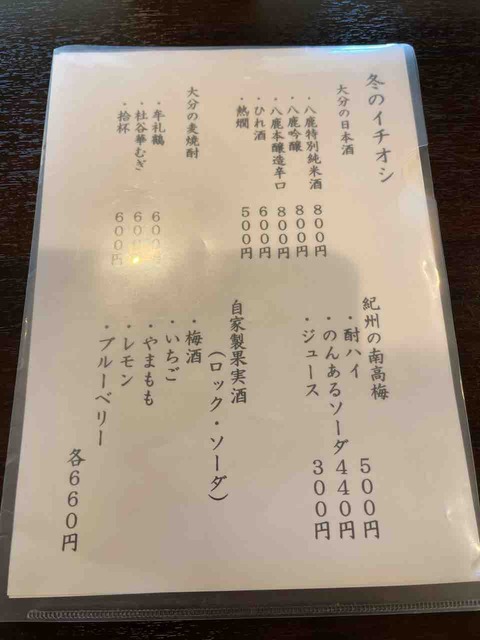 冬のイチオシ
大分の日本酒
・八鹿特別純米酒 800円
・八鹿吟醸 800円
・八鹿本醸造辛口 800円
・ひれ酒 600円
・熱燗 500円
大分の麦焼酎
・牟礼鶴 600円
・杜谷華むぎ 600円
・拾杯 600円
紀州の南高梅
・酎ハイ 500円
・のんあるソーダ 440円
・ジュース 300円
自家製果実酒
(ロック・ソーダ)
・梅酒
・いちご
・やまもも
・レモン
・ブルーベリー
各660円